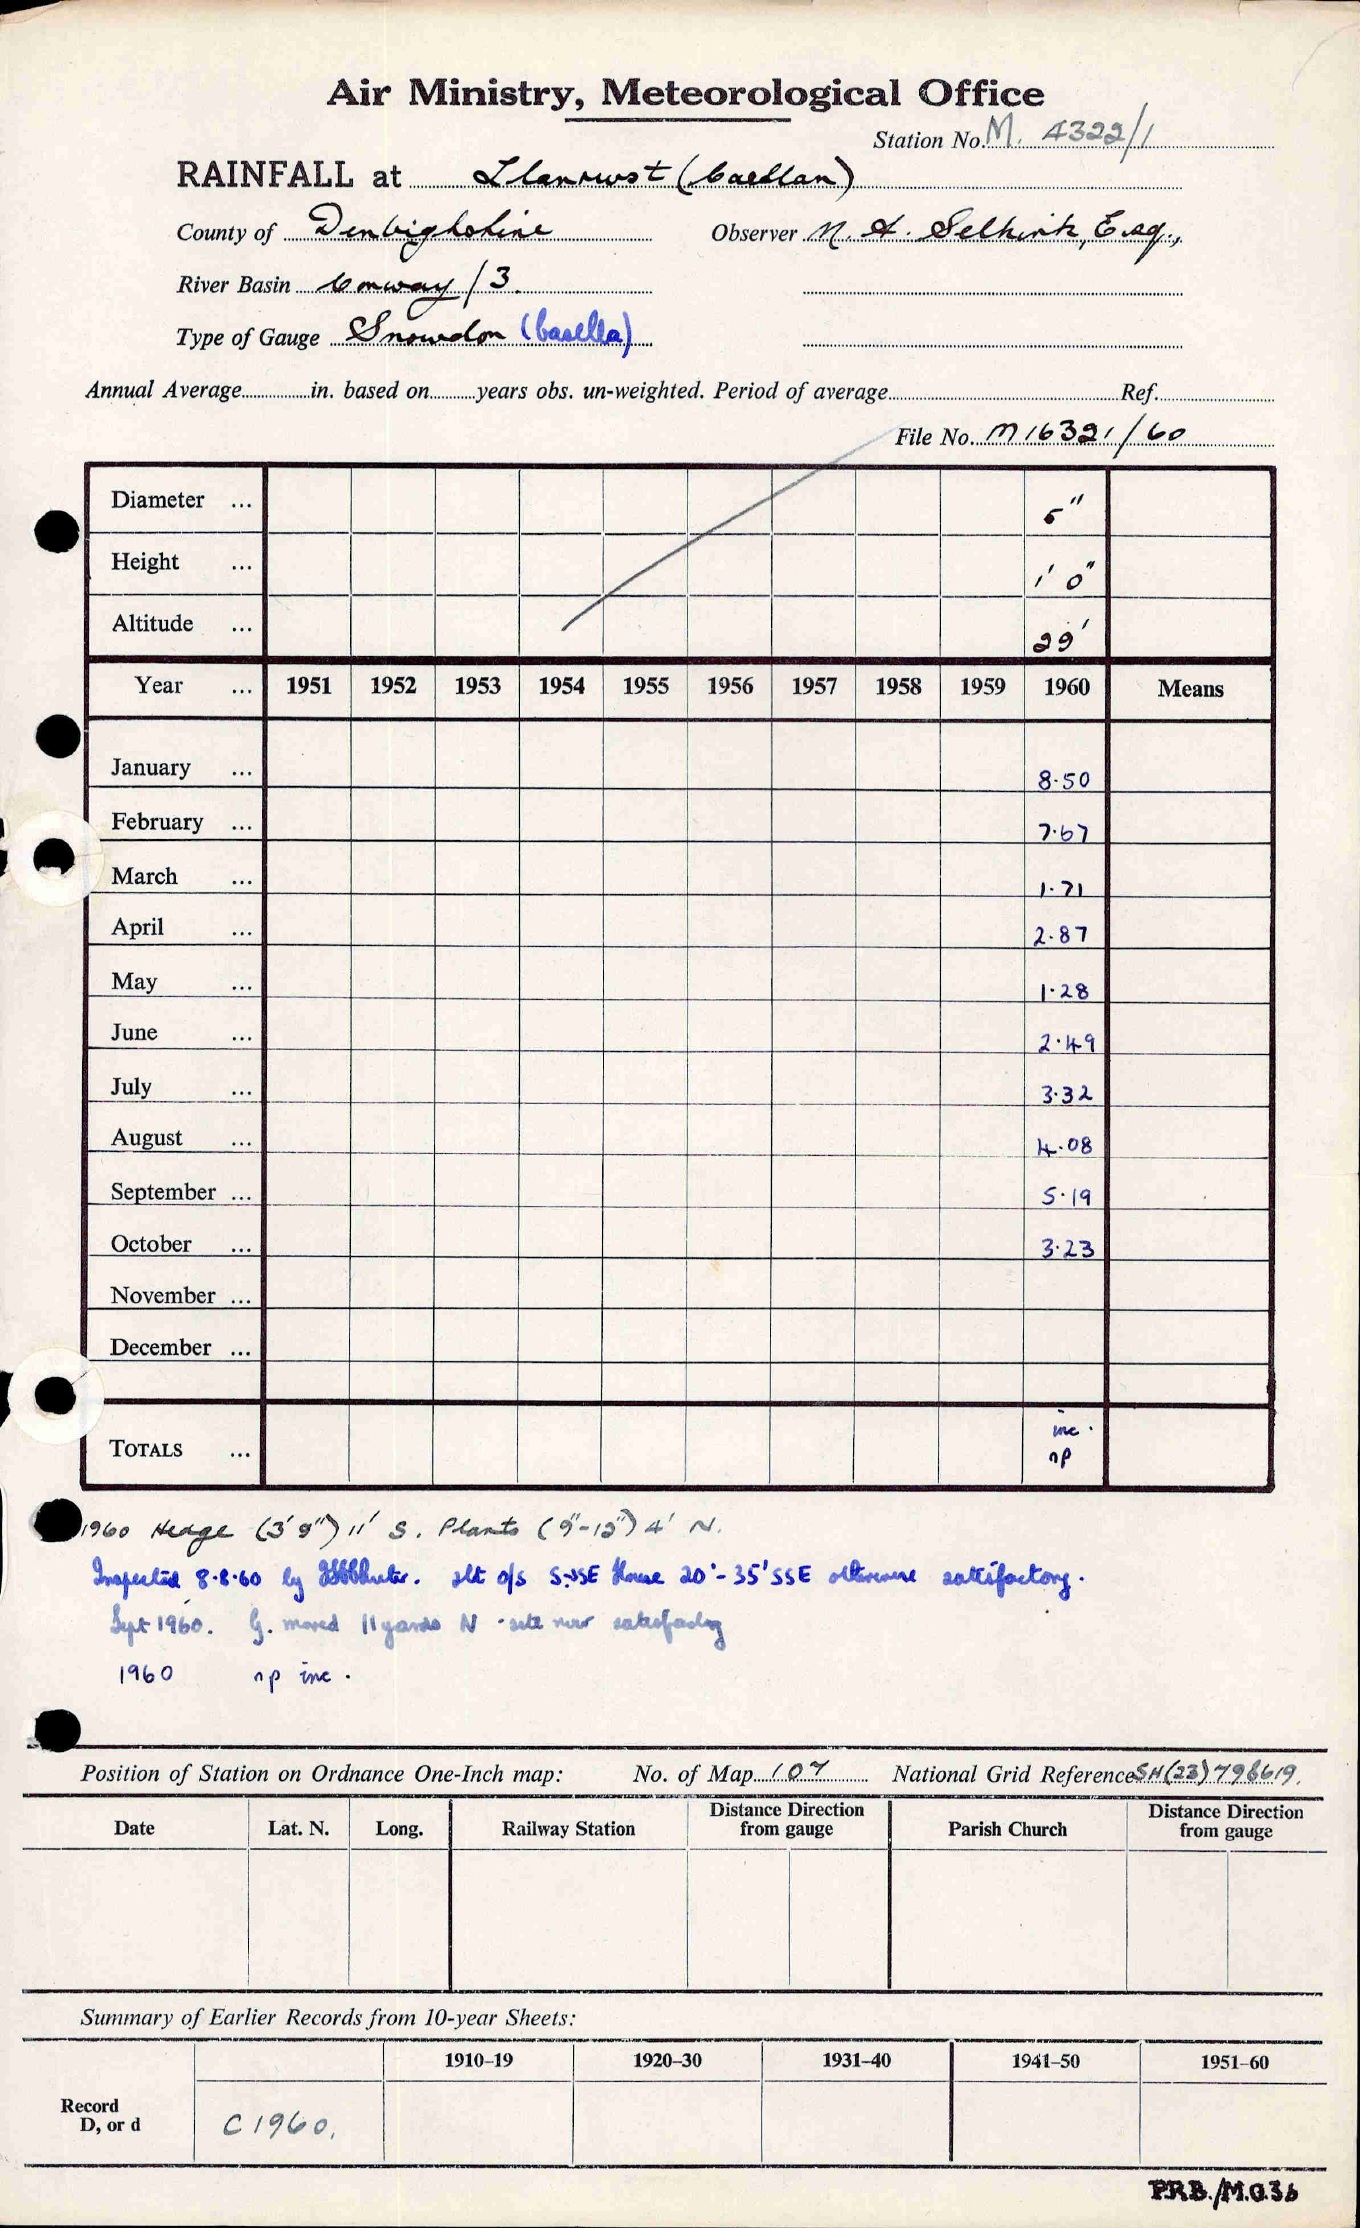 Air Ministry, Meteorological Office
Station No. M. 4322/1
RAINFALL at Llanrwst (Caedlan)
County of Denbighshire Observer N. A. Selkirk, Esq.,
River Basin Conway /3.
Type of Gauge Snowdon (Casella)
Annual Average in. based on years obs. un-weighted. Period of average Ref.
File No. M16321/60
Diameter ... 5"
Height ... 1' 0"
Altitude ... 29'
Year ... 1951 1952 1953 1954 1955 1956 1957 1958 1959 1960 Means
January ... 8.50
February ... 7.67
March ... 1.71
April ... 2.87
May ... 1.28
June ... 2.49
July ... 3.32
August ... 4.08
September ... 5.19
October ... 3.23
November ...
December ...
inc.
TOTALS ... np
1960 Hedge (3'9") 11' S. Plants (9"-12") 4' N.
Inspected 8.8.60 by slt o/s S-SSE House 20'-35' SSE otherwise satisfactory.
Sept 1960. G. moved 11 yards N - site now satisfactory
1960 np inc.
Position of Station on Ordnance One-Inch map: No. of Map 107 National Grid Reference SH(23)798619.
Date Lat. N. Long. Railway Station Distance Direction from gauge Parish Church Distance Direction from gauge
Summary of Earlier Records from 10-year Sheets:
1910–19 1920–30 1931–40 1941–50 1951–60
Record
D, or d C1960.
P.R.B./M.O.3b